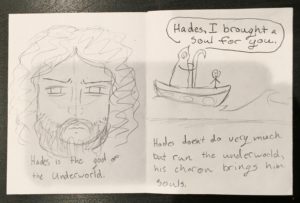 Hades is the god of
the Underworld.
Hades, I brought a
soul for you.
Hades doesn't do very much
but run the underworld,
his charon brings him
souls.